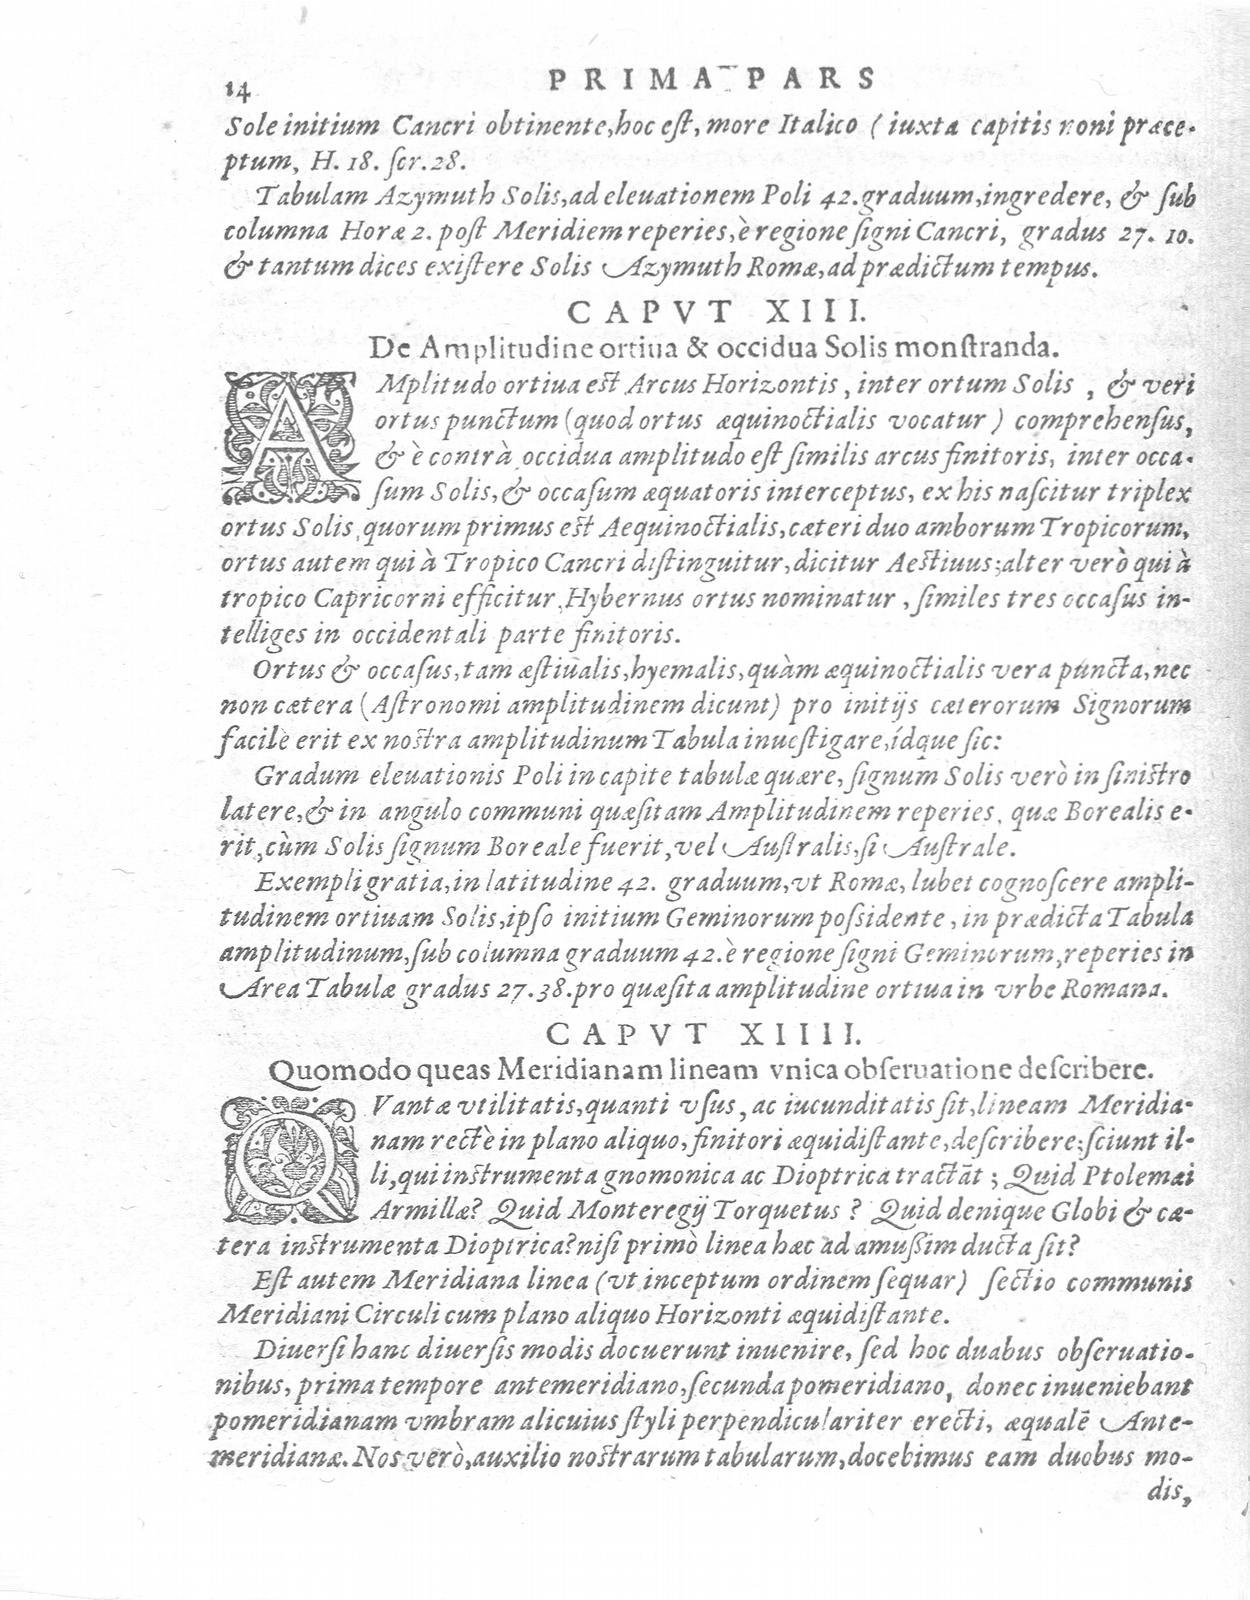 14 PRIMA PARS
Sole initium Cancri obtinente, hoc eſt, more Italico ( iuxta capitis noni præce-
ptum, H. 18. ſcr. 28.
Tabulam Azymuth Solis, ad eleuationem Poli 42. graduum, ingredere, & ſub
columna Horæ 2. poſt Meridiem reperies, è regione ſigni Cancri, gradus 27. 10.
& tantum dices exiſtere Solis Azymuth Romæ, ad prædictum tempus.
CAPVT XIII.
De Amplitudine ortiua & occidua Solis monſtranda.
AMplitudo ortiua eſt Arcus Horizontis, inter ortum Solis , & veri
ortus punctum (quod ortus æquinoctialis vocatur ) comprehenſus,
& è contrà occidua amplitudo eſt ſimilis arcus finitoris, inter occa-
ſum Solis, & occaſum æquatoris interceptus, ex his naſcitur triplex
ortus Solis, quorum primus eſt Aequinoctialis, cæteri duo amborum Tropicorum,
ortus autem qui à Tropico Cancri diſtinguitur, dicitur Aeſtiuus; alter verò qui à
tropico Capricorni efficitur, Hybernus ortus nominatur , ſimiles tres occaſus in-
telliges in occidentali parte finitoris.
Ortus & occaſus, tam æſtiualis, hyemalis, quàm æquinoctialis vera puncta, nec
non cætera (Aſtronomi amplitudinem dicunt) pro initijs cæterorum Signorum
facilè erit ex noſtra amplitudinum Tabula inueſtigare, ídque ſic:
Gradum eleuationis Poli in capite tabulæ quære, ſignum Solis verò in ſiniſtro
latere, & in angulo communi quæſitam Amplitudinem reperies, quæ Borealis e-
rit, cùm Solis ſignum Boreale fuerit, vel Auſtralis, ſi Auſtrale.
Exempli gratia, in latitudine 42. graduum, vt Romæ, lubet cognoſcere ampli-
tudinem ortiuam Solis, ipſo initium Geminorum poſsidente, in prædicta Tabula
amplitudinum, ſub columna graduum 42. è regione ſigni Geminorum, reperies in
Area Tabulæ gradus 27. 38. pro quæſita amplitudine ortiua in vrbe Romana.
CAPVT XIIII.
Quomodo queas Meridianam lineam vnica obſeruatione deſcribere.
QVantæ vtilitatis, quanti vſus, ac iucunditatis ſit, lineam Meridia-
nam rectè in plano aliquo, finitori æquidiſtante, deſcribere; ſciunt il-
li, qui inſtrumenta gnomonica ac Dioptrica tractāt ; Quid Ptolemæi
Armillæ? Quid Monteregij Torquetus ? Quid denique Globi & cæ-
tera inſtrumenta Dioptrica? niſi primò linea hæc ad amuſsim ducta ſit?
Eſt autem Meridiana linea (vt inceptum ordinem ſequar) ſectio communis
Meridiani Circuli cum plano aliquo Horizonti æquidiſtante.
Diuerſi hanc diuerſis modis docuerunt inuenire, ſed hoc duabus obſeruatio-
nibus, prima tempore antemeridiano, ſecunda pomeridiano, donec inueniebant
pomeridianam vmbram alicuius ſtyli perpendiculariter erecti, æqualē Ante-
meridianæ. Nos verò, auxilio noſtrarum tabularum, docebimus eam duobus mo-
dis,